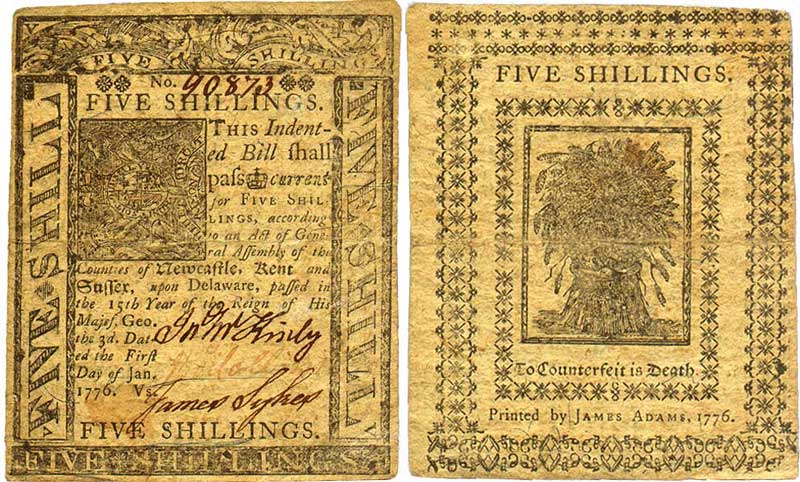 FIVE SHILLINGS
No. 90873
FIVE SHILLINGS.
THIS Indent-
ed Bill shall
pass current
for FIVE SHIL-
LINGS, according
to an Act of Gene-
ral Assembly of the
Counties of Newcastle, Kent and
Sussex, upon Delaware, passed in
the 15th Year of the Reign of His
Majest. Geo.
the 3d. Dat-
ed the First
Day of Jan.
1776. Vs.
Jno McKinly
James Sykes
FIVE SHILLINGS.
FIVE SHILLINGS
FIVE SHILL
FIVE SHILL
FIVE SHILLINGS.
To Counterfeit is Death.
Printed by JAMES ADAMS, 1776.